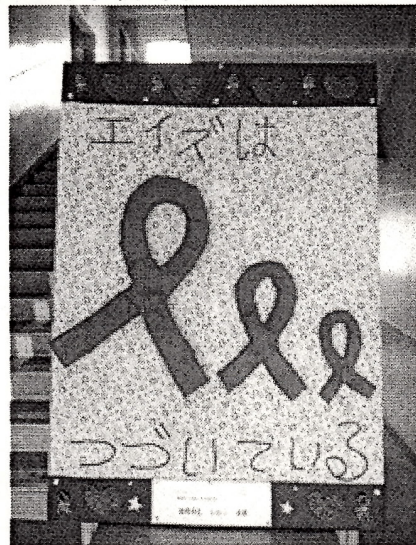 エイズは
つづいている